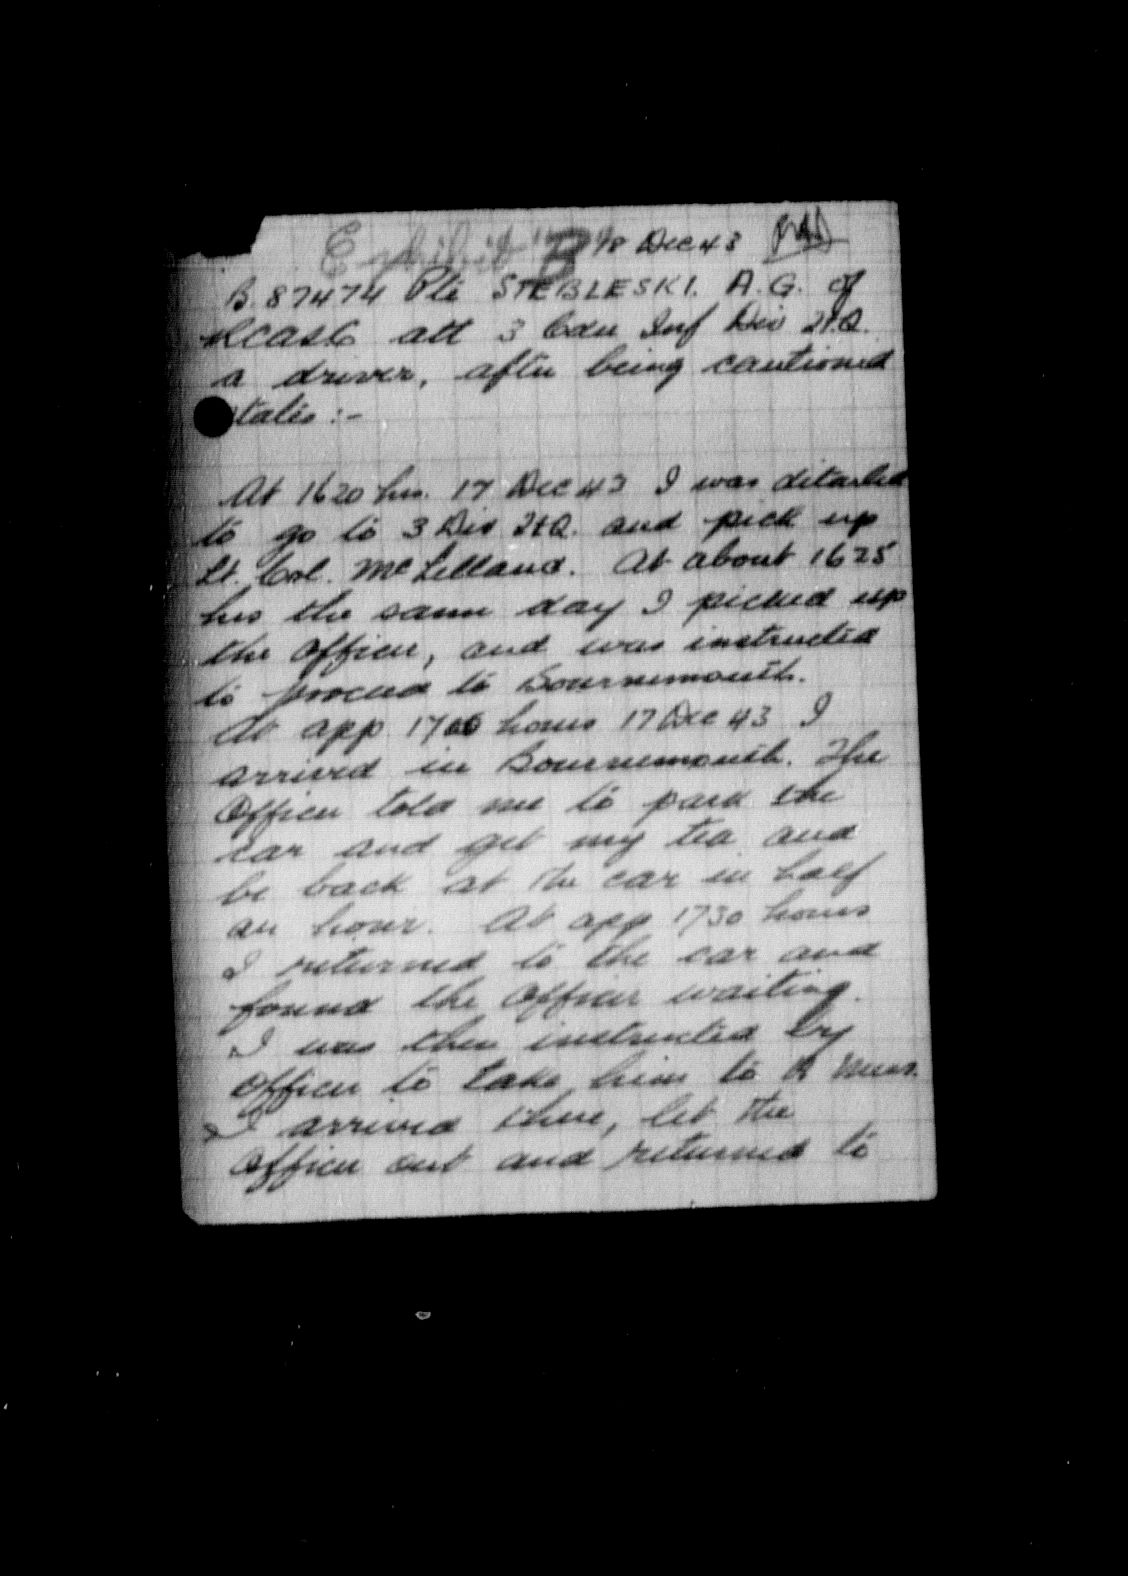 Exhibit "B" 18 Dec 43
B. 87474 Pte STEBLESKI. A.G. of
RCASC att 3 Cdn Inf Div H.Q.
a driver, after being cautioned
states :-
At 1620 hrs. 17 Dec 43 I was detailed
to go to 3 Div H.Q. and pick up
Lt. Col. McLelland. At about 1625
hrs the same day I picked up
the officer, and was instructed
to proceed to Bournemouth.
At app 1700 hours 17 Dec 43 I
arrived in Bournemouth. The
Officer told me to park the
car and get my tea and
be back at the car in half
an hour. At app 1730 hours
I returned to the car and
found the officer waiting.
I was then instructed by
officer to take him to A Mess.
I arrived there, let the
officer out and returned to